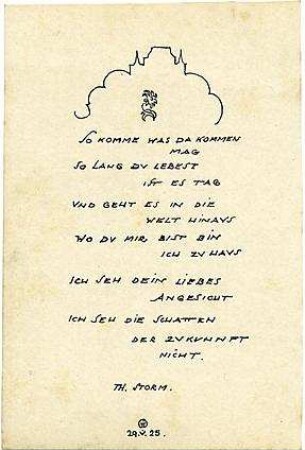 SO KOMME WAS DA KOMMEN
MAG
SO LANG DU LEBEST
IST ES TAG
UND GEHT ES IN DIE
WELT HINAUS
WO DU MIR BIST BIN
ICH ZU HAUS
ICH SEH DEIN LIEBES
ANGESICHT
ICH SEH DIE SCHATTEN
DER ZUKUNNFT
NICHT.
TH. STORM.
29.V.25.